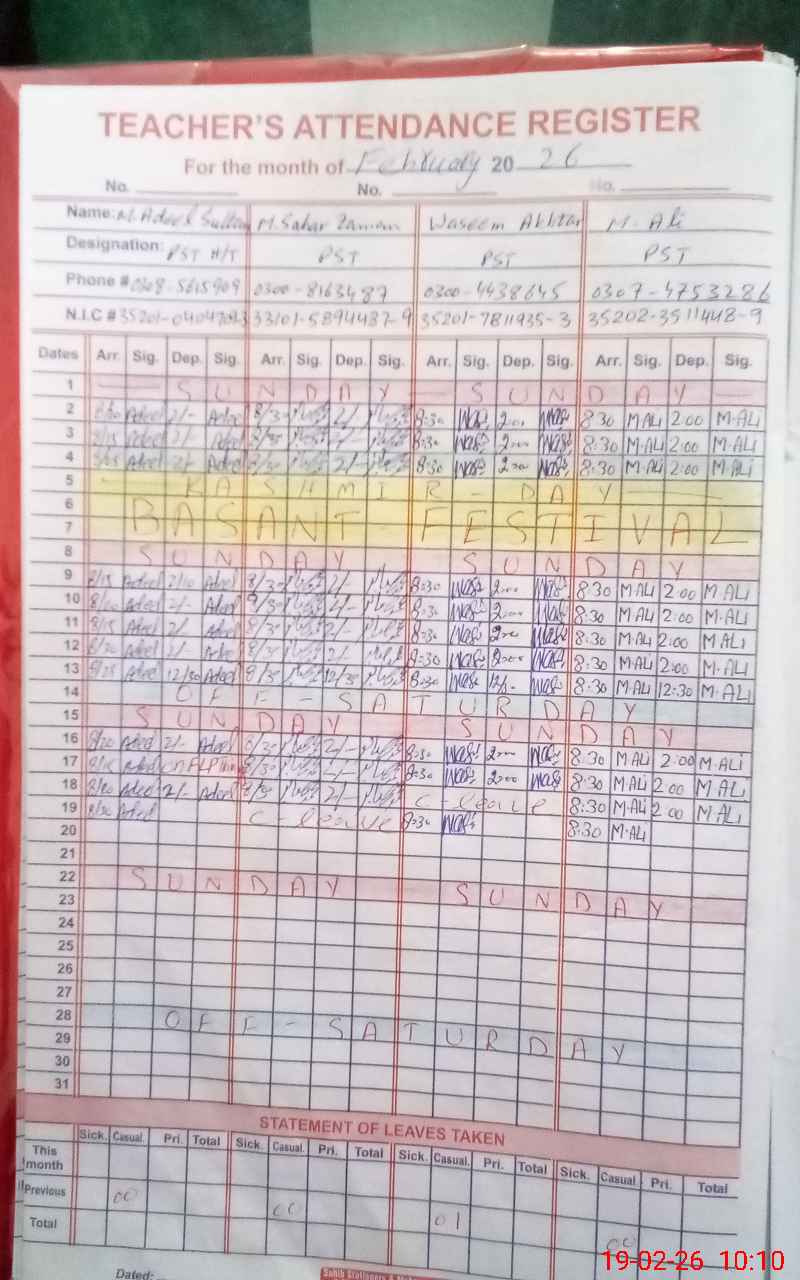 TEACHER'S ATTENDANCE REGISTER
For the month of February 20 26
No. No. No.
Name: M. Adeel Sultan M. Sahar Zaman Waseem Akhtar M. Ali
Designation: PST H/T PST PST PST
Phone # 0308-5615909 0300-8163487 0300-4438645 0307-4753286
N.I.C # 33101-5894487-9 35201-7811935-3 35202-3511448-9
Dates Arr. Sig. Dep. Sig. Arr. Sig. Dep. Sig. Arr. Sig. Dep. Sig. Arr. Sig. Dep. Sig.
1 SUNDAY - SUNDAY
2 Adeel 2/- Adeel 8/30 2/- 8:30 Was 2:00 Was 8:30 M ALI 2:00 M-ALI
3 8/15 Adeel 2/- Adeel 8/30 2/- 8:30 Was 2:00 Was 8:30 M-ALI 2:00 M-ALI
4 Adeel 2/- Adeel 8/30 2/- 8:30 Was 2:00 Was 8:30 M-ALI 2:00 M-ALi
5 KASHMIR - DAY
6 BASANT - FESTIVAL
7
8 SUNDAY SUNDAY
9 8/15 Adeel 2/10 Adeel 8/30 2/- 8:30 Was 2:00 Was 8:30 M-ALI 2:00 M ALI
10 Adeel 2/- Adeel 8/30 2/- 8:30 Was 2:00 Was 8:30 M-ALI 2:00 M-ALI
11 8/15 Adeel 2/- Adeel 8/30 2/- 8:30 Was 2:00 Was 8:30 M-ALI 2:00 M ALI
12 8/20 Adeel 2/- Adeel 8/30 2/- 8:30 Was 2:00 Was 8:30 M-ALI 2:00 M-ALI
13 8/25 Adeel 12/30 Adeel 8/30 12/30 8:30 Was 12/- Was 8:30 M-ALI 12:30 M-ALI
14 OFF - SATURDAY
15 SUNDAY SUNDAY
16 8/20 Adeel 2/- Adeel 8/30 2/- 8:30 Was 2:00 Was 8:30 M ALI 2:00 M-ALi
17 Adeel on 8/30 2/- 8:30 Was 2:00 Was 8:30 M-ALI 2:00 M ALI
18 8/20 Adeel 2/- Adeel 8/30 2/- C-leave 8:30 M-ALI 2:00 M ALI
19 8/30 Adeel C-leave 8:30 Was 8:30 M-ALI
20
21
22 SUNDAY SUNDAY
23
24
25
26
27
28 OFF - SATURDAY
29
30
31
STATEMENT OF LEAVES TAKEN
Sick. Casual. Pri. Total Sick. Casual. Pri. Total Sick. Casual. Pri. Total Sick. Casual. Pri. Total
This month
Previous 00 00 01 00
Total
Dated:
19-02-26 10:10